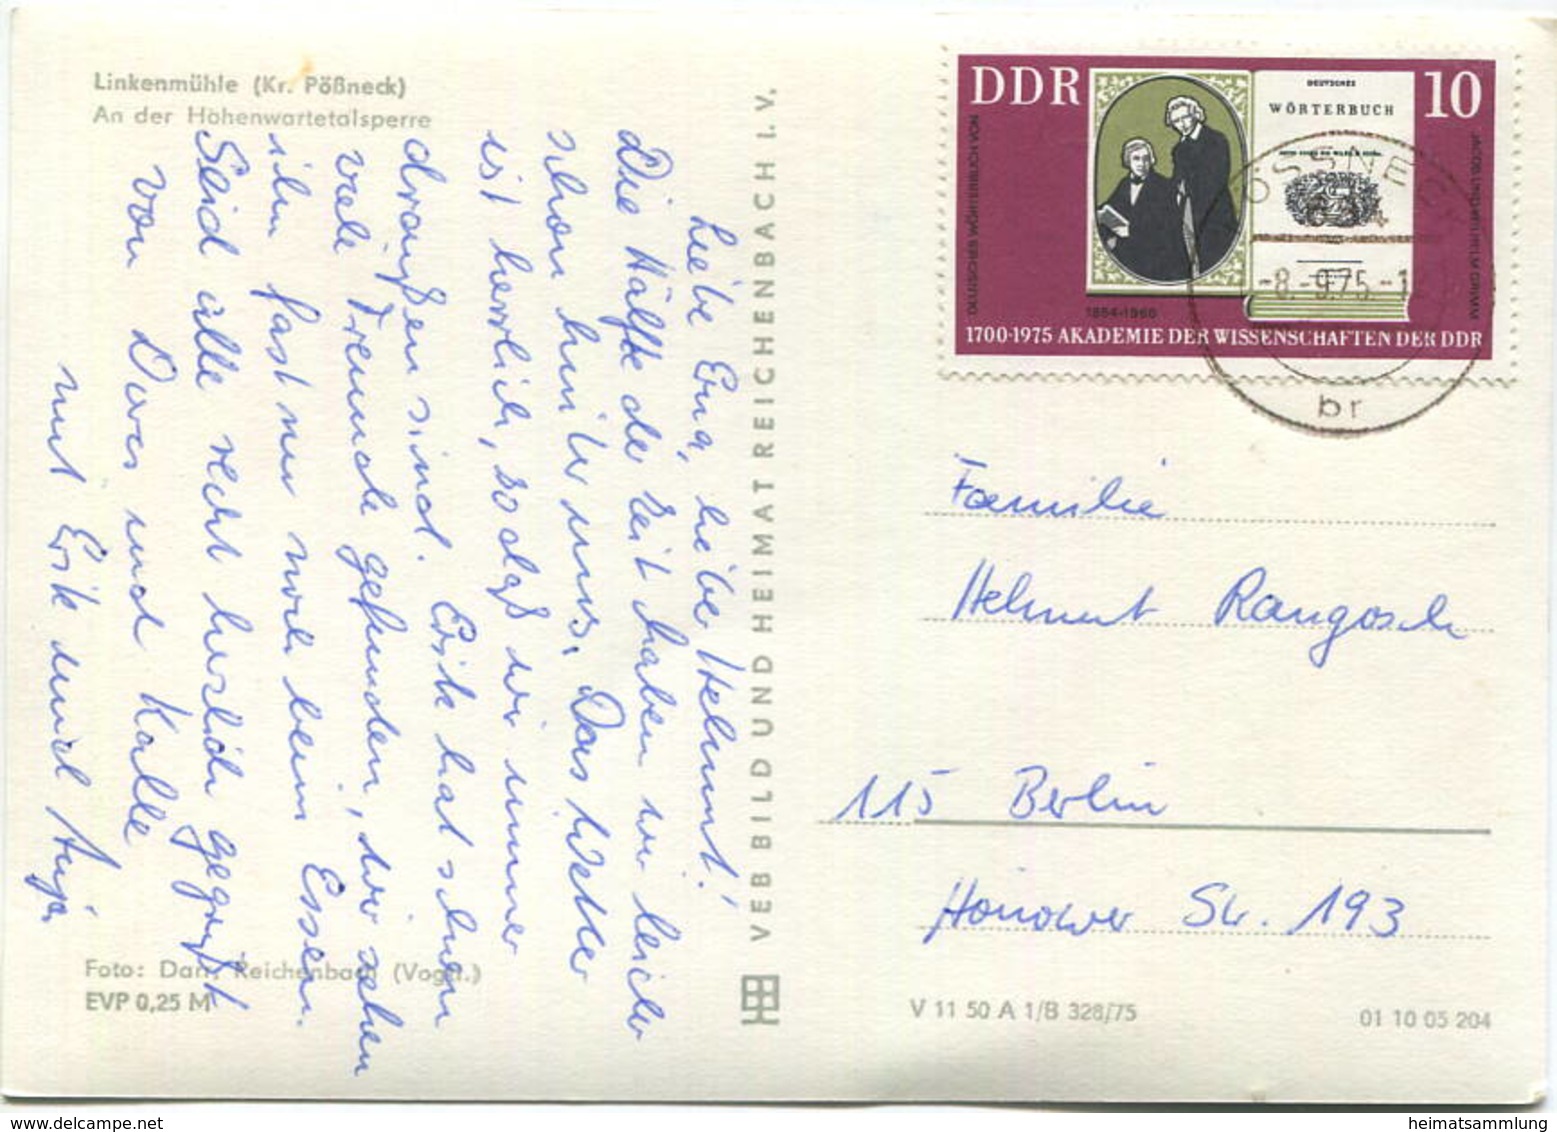 Linkenmühle (Kr. Pößneck)
An der Hohenwartetalsperre
Liebe Eva, lieber Helmut!
Die Hälfte der Zeit haben wir leider
schon hinter uns. Das Wetter
ist herrlich, so daß wir immer
draußen sind. Erik hat schon
viele Freunde gefunden, wir sehen
ihn fast nur noch beim Essen.
Seid alle recht herzlich gegrüßt
von Doris und Kalle
mit Erik und Anja
Foto: Darr, Reichenbach (Vogtl.)
EVP 0,25 M
VEB BILD UND HEIMAT REICHENBACH I. V.
DDR
10
DEUTSCHES
WÖRTERBUCH
DEUTSCHES WÖRTERBUCH VON
JACOB UND WILHELM GRIMM
1854-1960
1700-1975 AKADEMIE DER WISSENSCHAFTEN DER DDR
PÖSSNECK
-8.-9.75.-1
br
Familie
Helmut Rangosch
115 Berlin
Hönower Str. 193
V 11 50 A 1/B 328/75
01 10 05 204
heimatsammlung